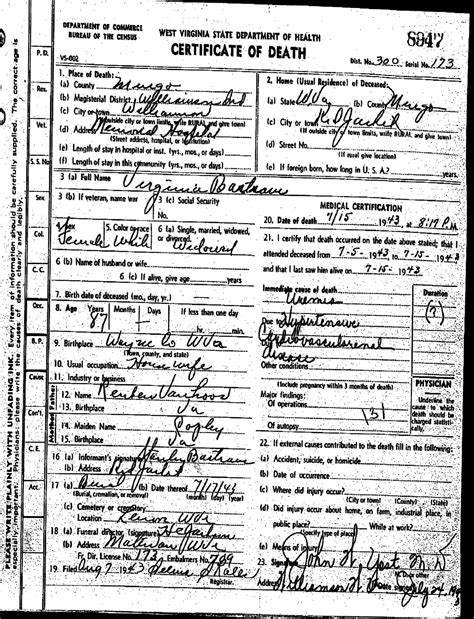 DEPARTMENT OF COMMERCE
BUREAU OF THE CENSUS
WEST VIRGINIA STATE DEPARTMENT OF HEALTH
CERTIFICATE OF DEATH
8947
VS-002
Dist. No. 300 Serial No. 173
P.D.
1. Place of Death:
(a) County Mingo
(b) Magisterial District Williamson
(c) City or town Williamson
(If outside city or town limits, write RURAL and give town)
(d) Address Memorial Hospital
(Street address, hospital, or institution)
(e) Length of stay in hospital or inst. (yrs., mos., or days)
(f) Length of stay in this community (yrs., mos., or days)
2. Home (Usual Residence) of Deceased:
(a) State W Va (b) County Mingo
(c) City or town Red Jacket
(If outside city or town limits, write RURAL and give town)
(d) Street No.
(If rural give location)
(e) If foreign born, how long in U. S. A.?
Res.
Vet.
S. S. No.
Sex
Col.
C. C.
Occ.
B. P.
Cause
Con't.
C. E.
Acc.
3 (a) Full Name Virginia
3 (b) If veteran, name war
3 (c) Social Security No.
4. Sex Female
5. Color or race White
6 (a) Single, married, widowed, or divorced. Widowed
6 (b) Name of husband or wife
6 (c) If alive, give age years
7. Birth date of deceased (mo., day, yr.)
8. Age Years 87 Months Days If less than one day
hr. min.
9. Birthplace Wayne Co W Va
(Town, county, and state)
10. Usual occupation House wife
11. Industry or business
Father
12. Name Reuben
13. Birthplace Va
Mother
14. Maiden Name
15. Birthplace Va
16 (a) Informant's signature
(b) Address Red Jacket
17 (a) Burial (b) Date thereof 7/17/43
(Burial, cremation, or removal) (month) (day) (year)
(c) Cemetery or crematory
Location W Va
18 (a) Funeral director (signature)
(b) Address Matewan W Va
Fr. Dir. License No. 173 Embalmers No. 769
19. Filed Aug 7 1943
Registrar.
MEDICAL CERTIFICATION
20. Date of death 7/15 1943 at 8:17 P.M.
21. I certify that death occurred on the above stated date; that I
attended deceased from 7-5- 1943 to 7-15- 1943
and that I last saw him alive on 7-15- 1943
Immediate cause of death Uremia
Duration
(?)
Due to Hypertensive
Cardiovascularrenal
disease
Other conditions
(Include pregnancy within 3 months of death)
Major findings:
Of operations
131
Of autopsy
PHYSICIAN
Underline the cause to which death should be charged statistically.
22. If external causes contributed to the death fill in the following:
(a) Accident, suicide, or homicide
(b) Date of occurrence
(c) Where did injury occur?
(City or town) (County) (State)
(d) Did injury occur about home, on farm, industrial place, in
public place? While at work?
(Specify type of place)
(e) Means of injury
23. Signature John W. Yost M.D.
M. D. or other
Address Williamson W. Date signed July 24 1943
PLEASE WRITE PLAINLY WITH UNFADING INK. Every item of information should be carefully supplied. The correct age is
especially important. Physicians: please write the causes of death clearly and legibly.